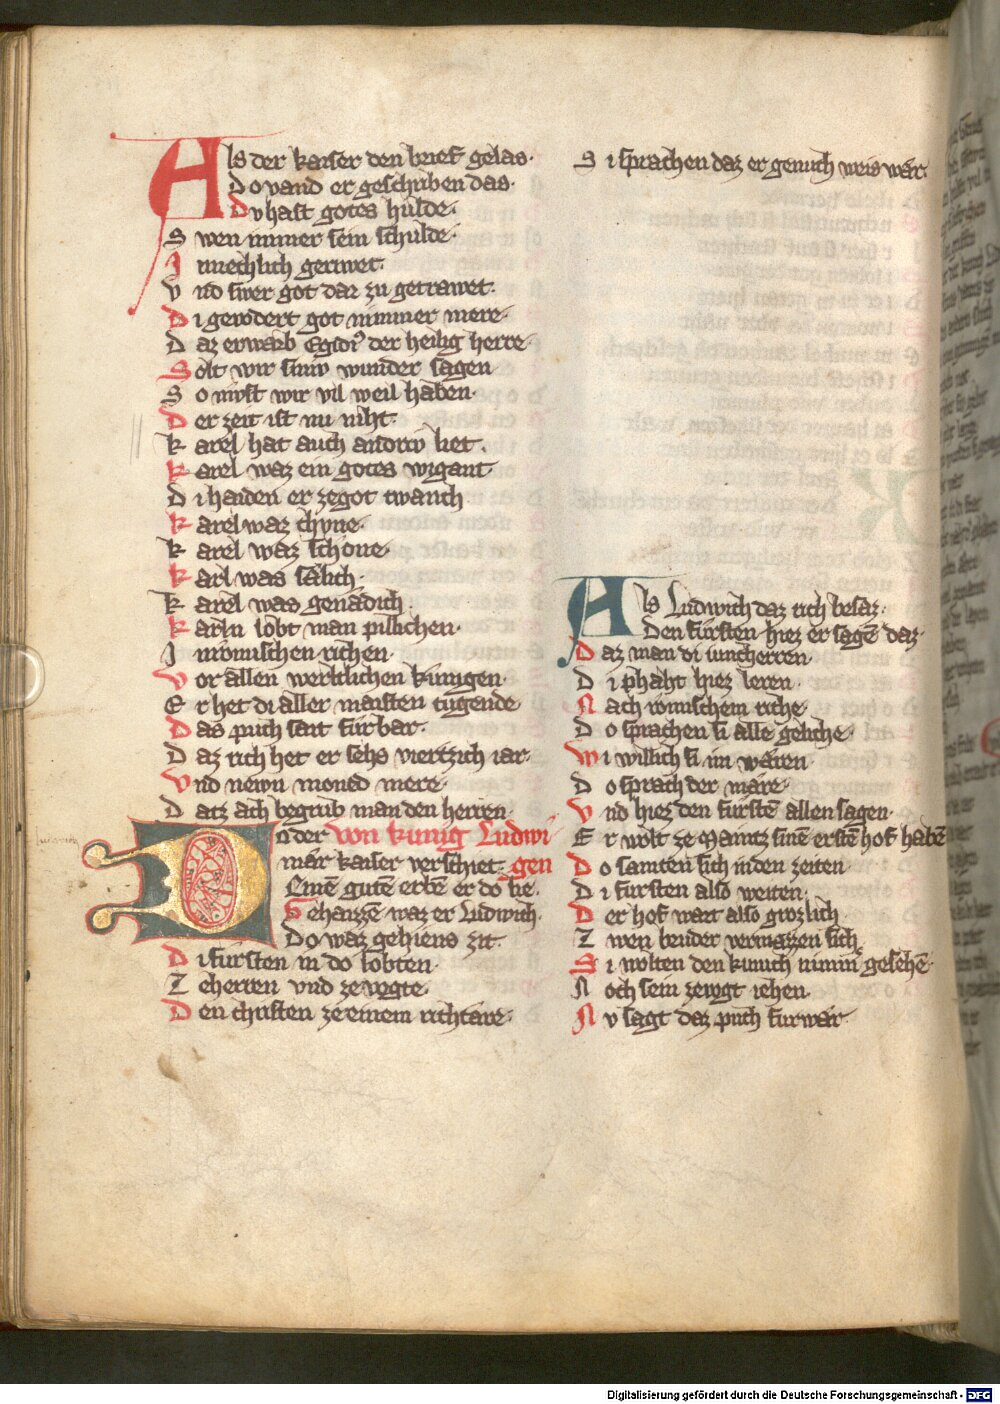 Als der kaiser den brief gelas·
Do vand er geschriben das·
Dv hast gotes hulde·
Swen immer sein schulde·
Innechlich geriwet·
Vnd swer got dar zu getrawet·
Di gevodert got nimmer mere·
Daz erwarb Egidi der heilig herre·
Solt wir siniv wunder sagen
So must wir vil weil haben·
Der zeit ist nu niht·
Karel hat auch andriv liet·
Karel waz ein gotes wigant
Di haiden er ze got twanch
Karel waz chvne·
Karel waz schone·
Karl was sälich·
Karel was genädich·
Karln lobt man pillichen·
In romischen richen·
Vor allen werltlichen kunigen·
Er het di aller maisten tugende
Das puch sait fur bar·
Daz rich het er sehs viertzich iar·
Vnd newn moned mere·
Datz ach begrub man den herren
Do der von kunig Ludwi
mär kaiser verschiet· gen
Einē gutē erbē er do lie·
Gehaizzē waz er Ludwich·
Do waz gehiens zit·
Di fursten in do lobten·
Ze herren vnd ze vogte·
Den christen ze einem richtäre·
Si sprachen daz er genuch weis wär·
Als Ludwich daz rich besaz·
Den fursten hiez er sagē daz·
Daz man di iuncherren·
Di phaht hiez leren·
Nach romischem riche·
Do sprachen si alle geliche·
Wi willich si im wären·
Do sprach der märe·
Vnd hiez den furstē allen sagen·
Er wolt ze Maintz sinē erstē hof habē
Do samten sich in den zeiten
Di fursten also weiten·
Der hof wart also grozlich
Zwen bruder vermazzen sich
Si wolten den kunich nimmer gesehē·
Noch sein ze vogt iehen·
Nv sagt daz puch furwar·
Digitalisierung gefördert durch die Deutsche Forschungsgemeinschaft - DFG